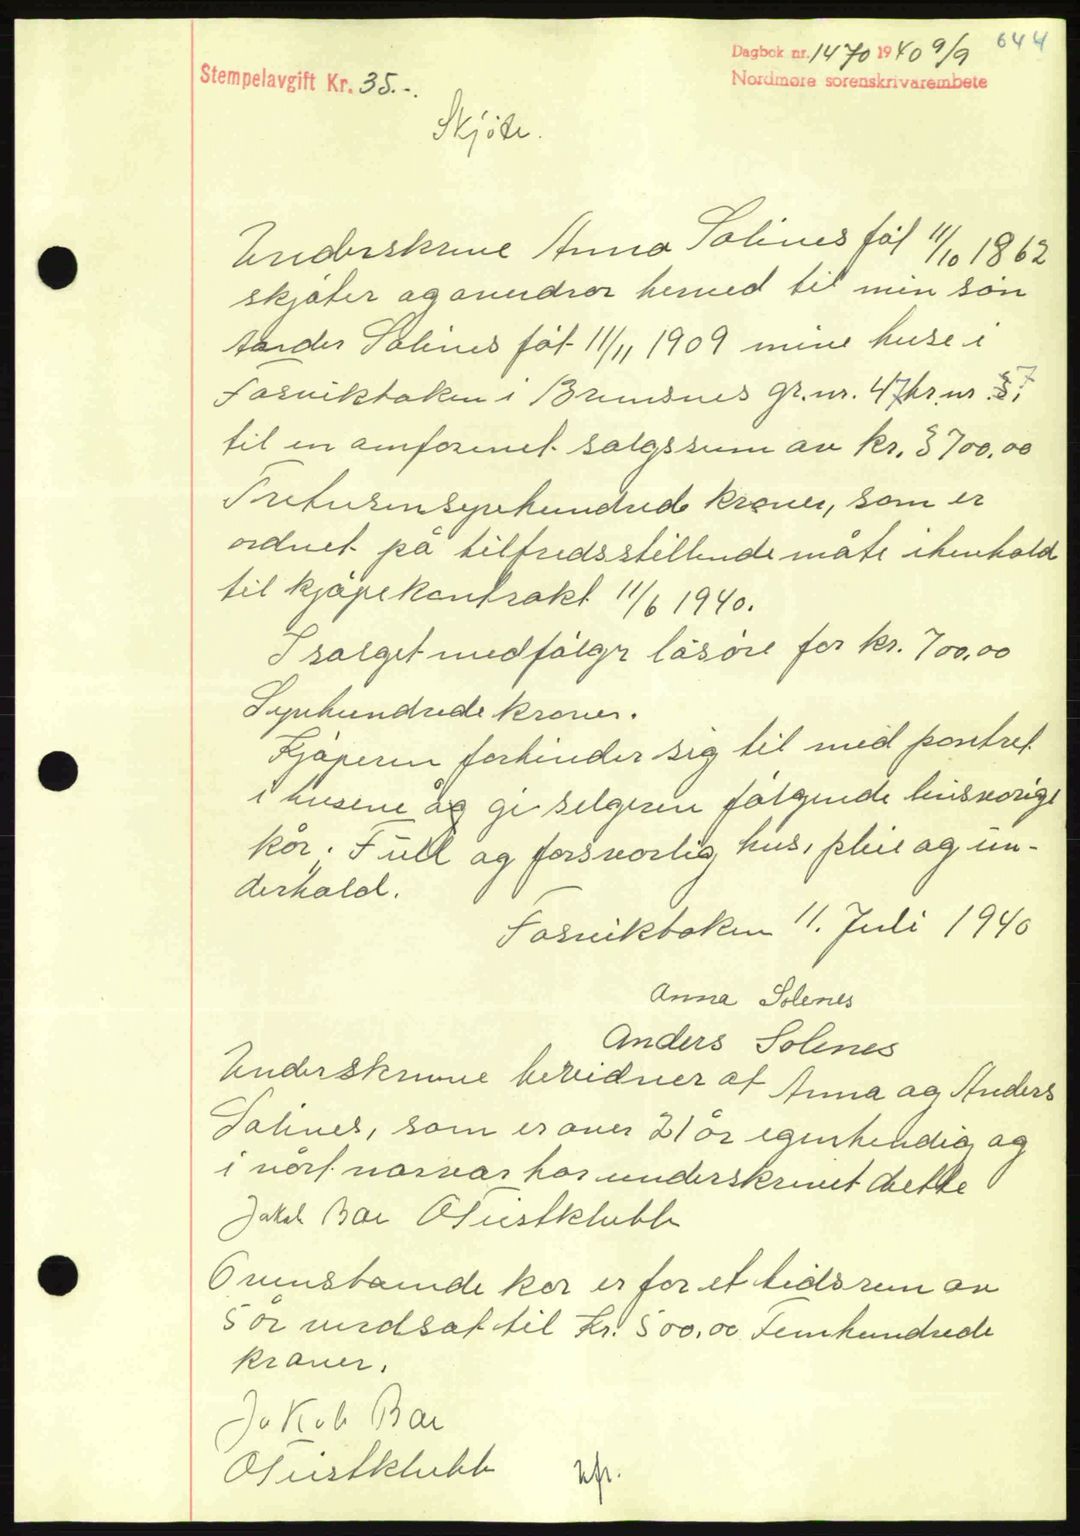 644
Dagbok nr. 1470 1940 9/9
Nordmøre sorenskrivarembete
Stempelavgift Kr. 35.-.
Skjöte.
Underskrive Anna Solines föt 11/10 1862
skjöter og overdrar herved til min sön
Ander Solines föt 11/11 1909 mine huse i
Fosvikbaken i Bremsnes gr. nr. 47 br nr. 7
til en omforenet salgssum av kr. 3700.00
Tretusensyvhundrede kroner, som er
ordnet på tilfredsstillende måte i henhold
til kjöpekontrakt 11/6 1940.
I salget medfölgr lösöre for kr. 700,00
Syvhundrede kroner.
Kjöperen forbinder sig til med pantret
i husene og gi selgeren fölgende livsvarige
kör. Full og forsvarlig hus, pleie og un-
derhold.
Fosvikbaken 11. Juli 1940
Anna Solenes
Anders Solenes
Underskrevne bevidner at Anna og Anders
Solines, som er over 21 år egenhendig og
i vårt nærvær har underskrevet dette
Jakob Bae
Ovenstående kår er for et tidsrum av
5 år verdsat til Kr. 500.00 Femhundrede
kroner.
Jakob Bae